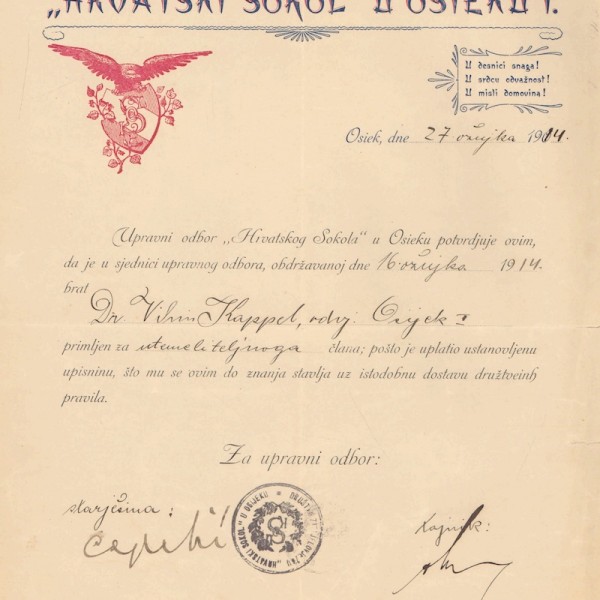 „HRVATSKI SOKOL" U OSIEKU I.
U desnici snaga!
U srdcu odvažnost!
U misli domovina!
Osiek, dne 27 ožujka 1914.
Upravni odbor „Hrvatskog Sokola" u Osieku potvrdjuje ovim,
da je u sjednici upravnog odbora, obdržavanoj dne 16 ožujka 1914.
brat
Dr. Vilim Kappel, odvj. Osijek I
primljen za utemeljiteljnoga člana; pošto je uplatio ustanovljenu
upisninu, što mu se ovim do znanja stavlja uz istodobnu dostavu družtveinh
pravila.
Za upravni odbor:
starješina:
Tajnik:
"HRVATSKI SOKOL" U OSIJEKU